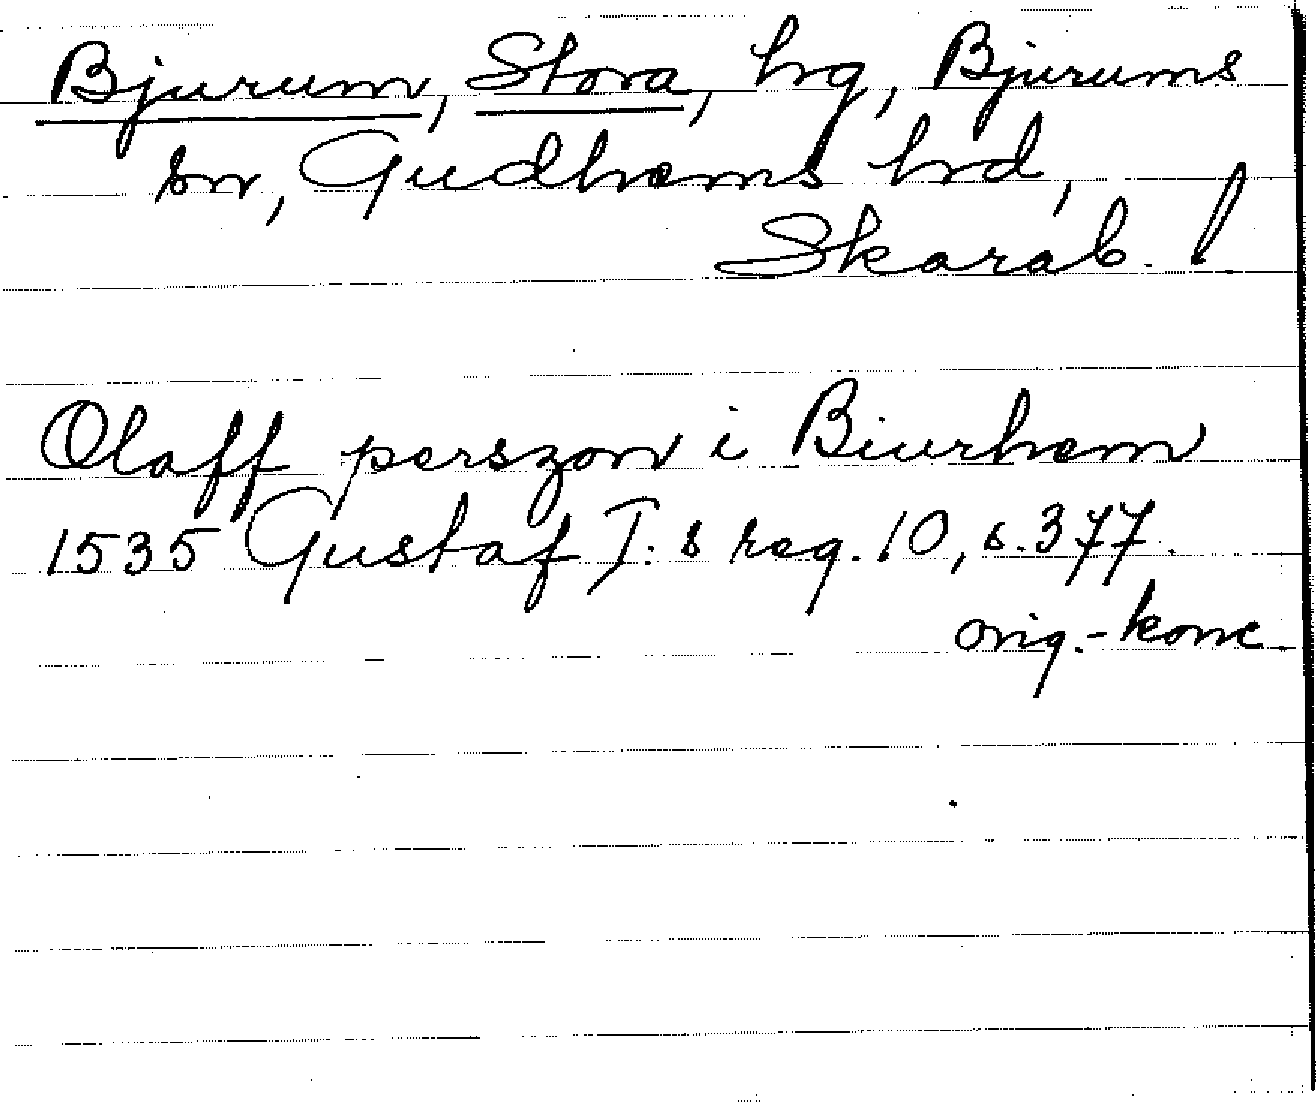 Bjurum, Stora, hrg, Bjurums
sn, Gudhems hrd,
Skarab.
Olaff perszon i Biurhem
1535 Gustaf I:s reg. 10, s. 377.
orig.-konc.